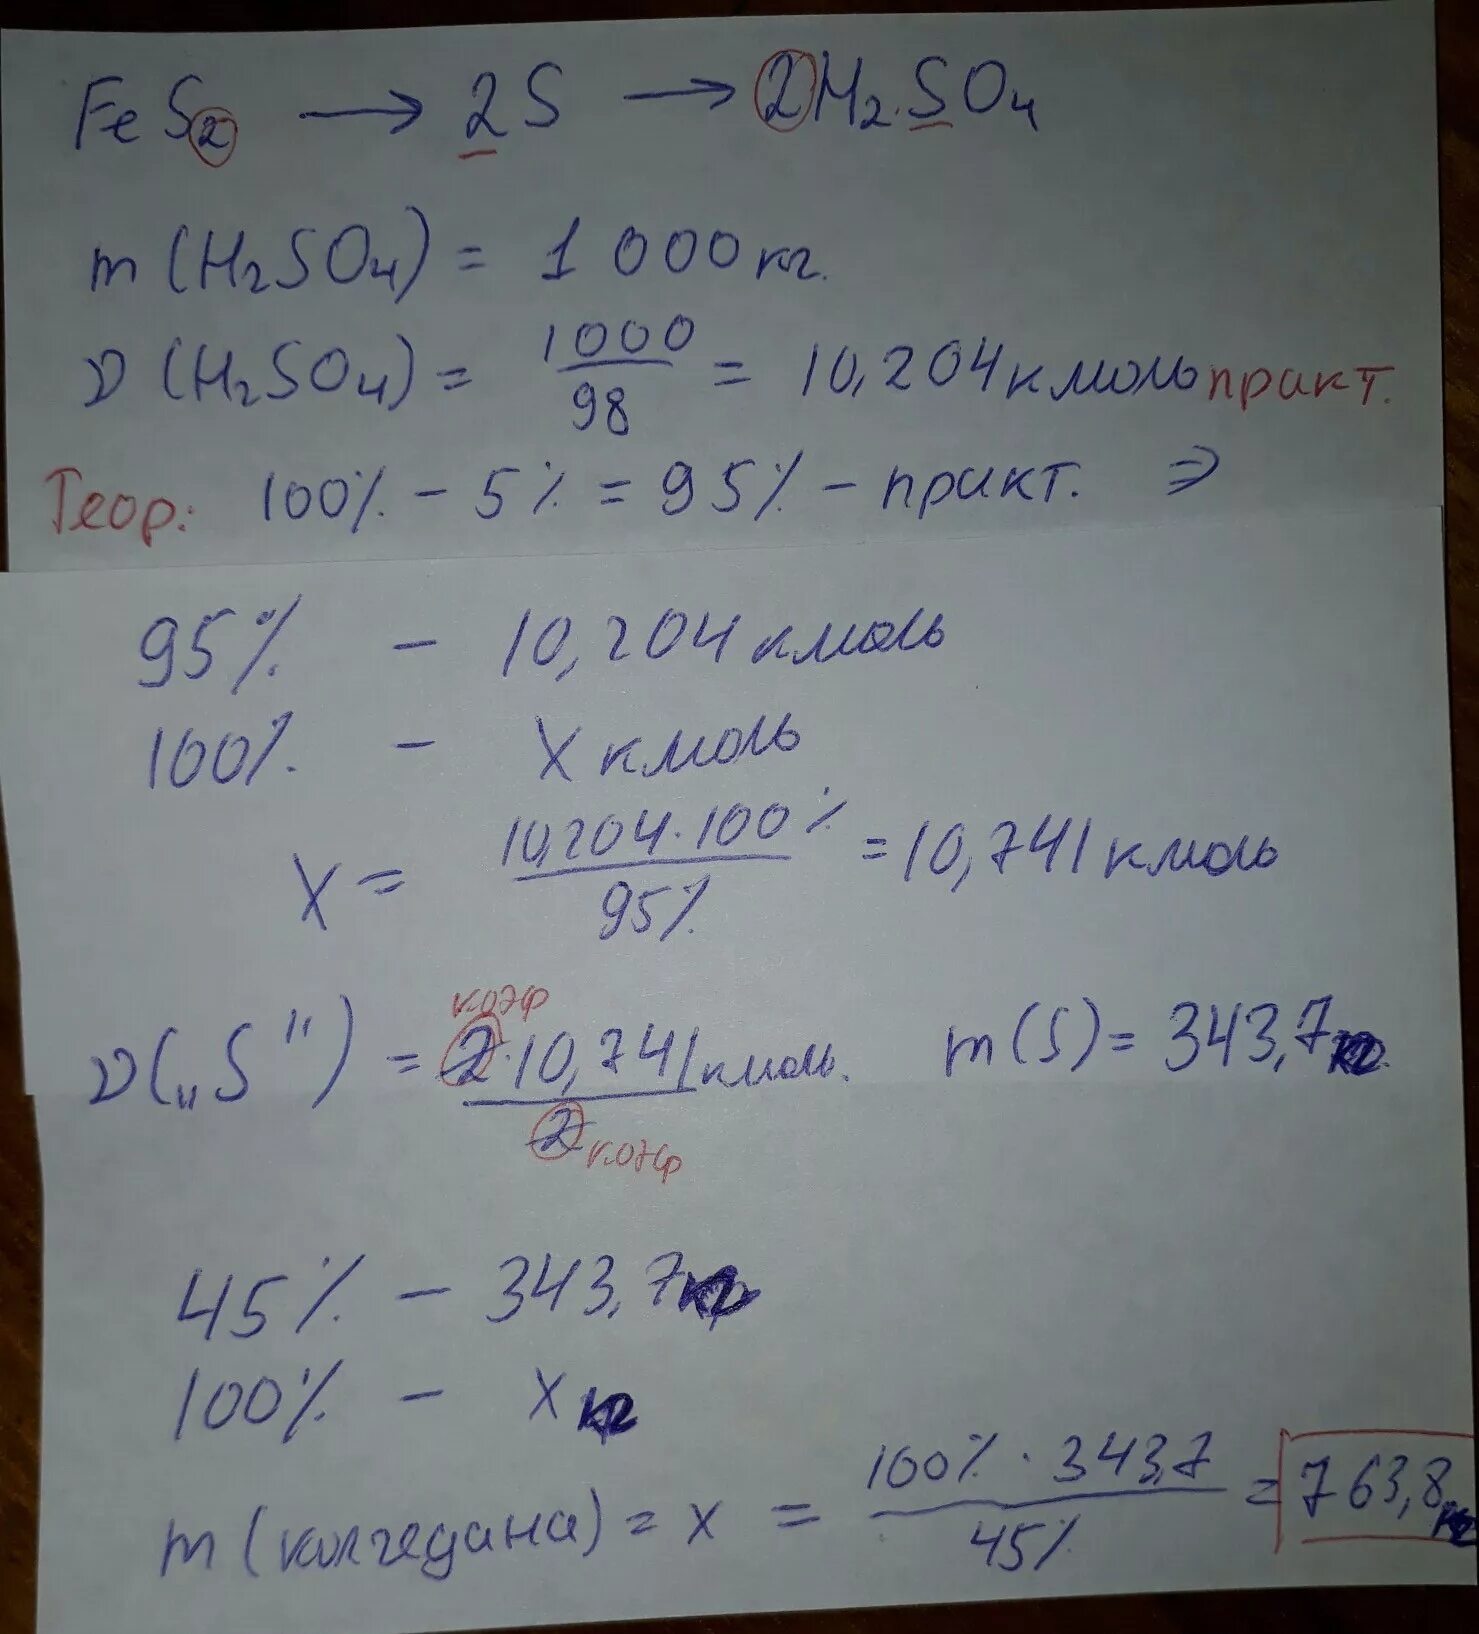 FeS₂ → 2S → 2H₂SO₄
m (H₂SO₄) = 1 000 кг.
ν (H₂SO₄) = 1000/98 = 10,204 кмоль практ.
Теор: 100% - 5% = 95% - практ. ⇒
95% - 10,204 кмоль
100% - x кмоль
x = 10,204·100%/95% = 10,741 кмоль
коэф
ν(„S") = 2·10,741/2 кмоль. m(S) = 343,7 кг.
коэф
45% - 343,7 кг
100% - x кг
m (колчедана) = x = 100% · 343,7/45% = 763,8 кг